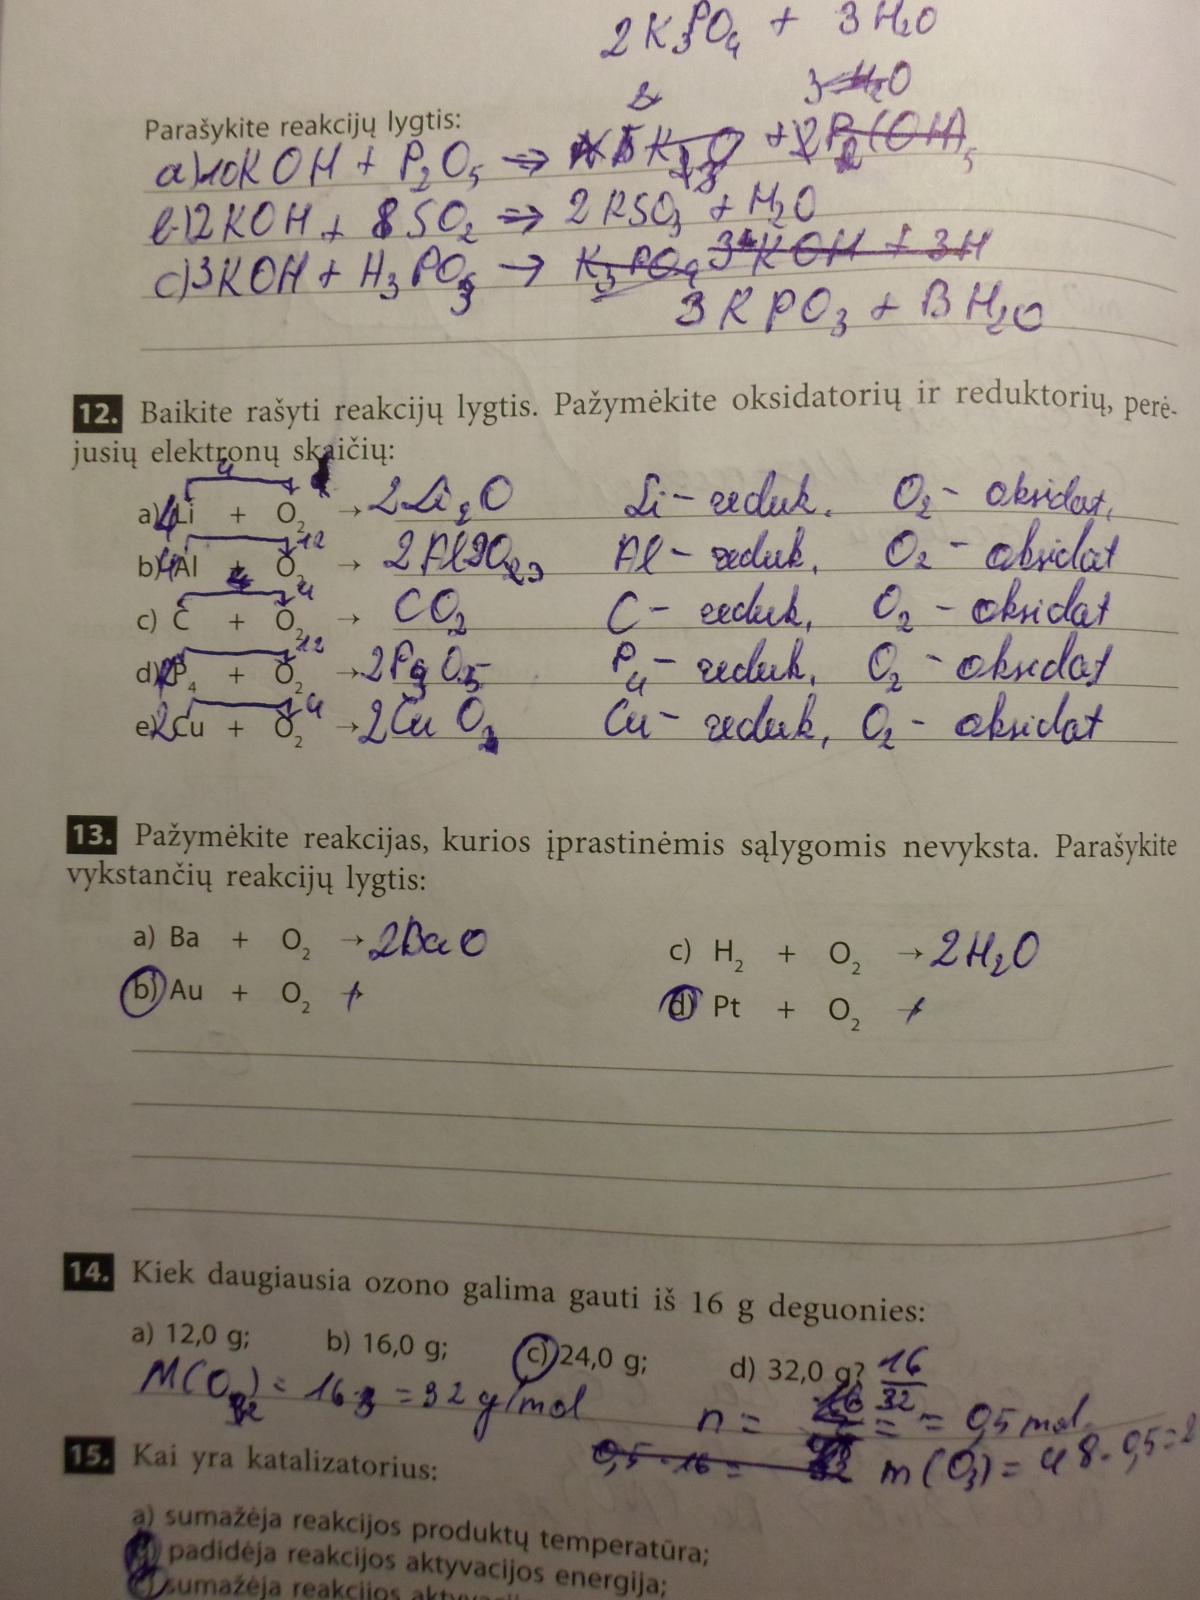 2K3PO4 + 3H2O
3 H2O
Parašykite reakcijų lygtis:
a) 10KOH + P2O5 ⇒
b) 2KOH + SO2 ⇒ 2KSO3 + H2O
c) 3KOH + H3PO3 → K3PO4 3KOH + 3H
3KPO3 + 3H2O
12. Baikite rašyti reakcijų lygtis. Pažymėkite oksidatorių ir reduktorių, perė-
jusių elektronų skaičių:
4
a) 4Li + O2 → 2Li2O Li – reduk, O2 – oksidat,
12
b) 4Al + O2 → 2Al2O3 Al – reduk, O2 – oksidat
4
c) C + O2 → CO2 C – reduk, O2 – oksidat
12
d) P4 + O2 → 2P O5 P4 – reduk, O2 – oksidat
4
e) 2Cu + O2 → 2CuO Cu – reduk, O2 – oksidat
13. Pažymėkite reakcijas, kurios įprastinėmis sąlygomis nevyksta. Parašykite
vykstančių reakcijų lygtis:
a) Ba + O2 → 2BaO
c) H2 + O2 → 2H2O
b) Au + O2 →
d) Pt + O2 →
14. Kiek daugiausia ozono galima gauti iš 16 g deguonies:
a) 12,0 g; b) 16,0 g; c) 24,0 g; d) 32,0 g? 16
32
M(O2) = 16·  = 32 g/mol
n = = = 0,5 mol
0,5 · 16 = m(O3) = 48 · 0,5 = 2
15. Kai yra katalizatorius:
a) sumažėja reakcijos produktų temperatūra;
b) padidėja reakcijos aktyvacijos energija;
c) sumažėja reakcijos